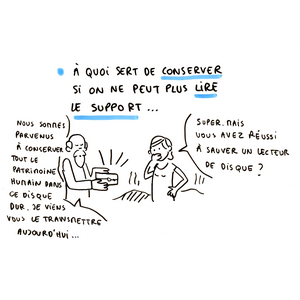 • À QUOI SERT DE CONSERVER
SI ON NE PEUT PLUS LIRE
LE SUPPORT...
NOUS SOMMES
PARVENUS
À CONSERVER
TOUT LE
PATRIMOINE
HUMAIN DANS
CE DISQUE
DUR, JE VIENS
VOUS LE TRANSMETTRE
AUJOURD'HUI...
SUPER, MAIS
VOUS AVEZ RÉUSSI
À SAUVER UN LECTEUR
DE DISQUE ?